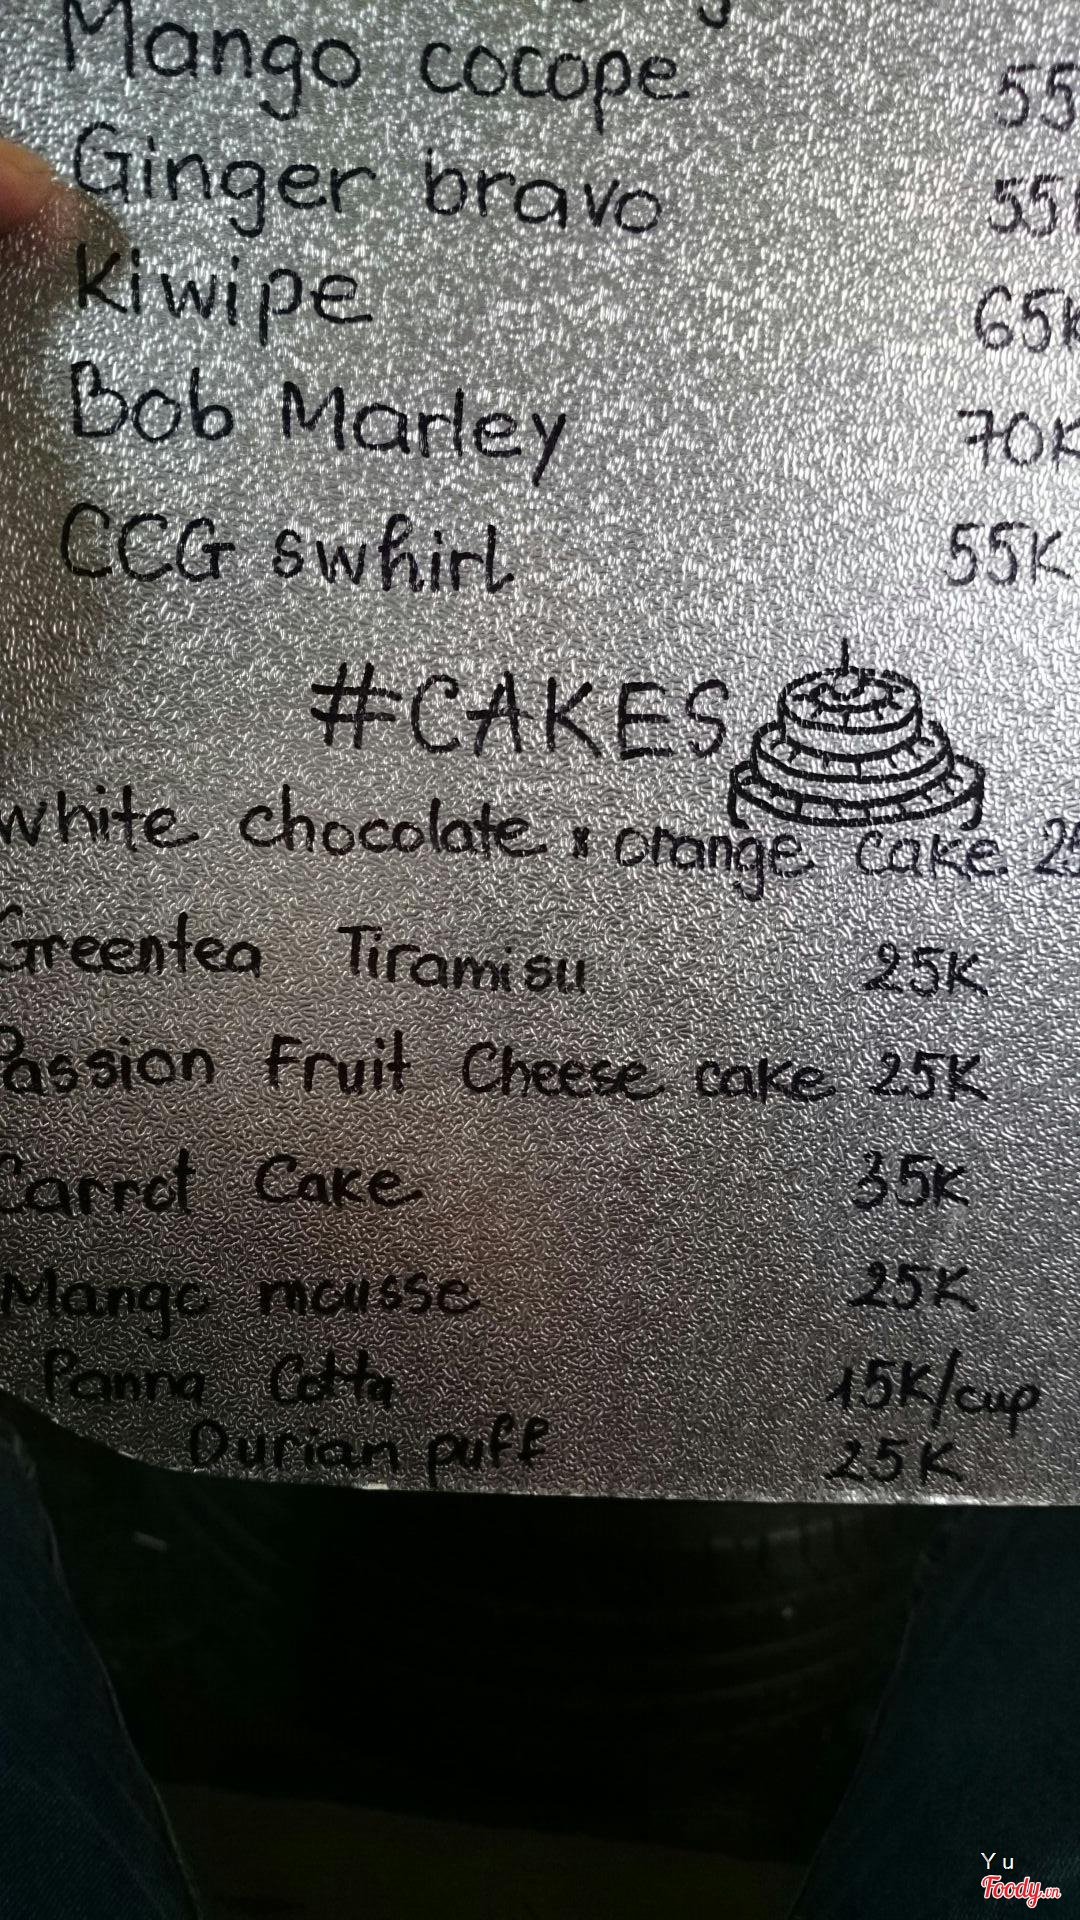 Mango cocope 55
Ginger bravo 55K
Kiwipe 65K
Bob Marley 70K
CCG swhirl 55K
#CAKES
White chocolate x orange cake 25
Greentea Tiramisu 25K
Passion Fruit Cheese cake 25K
Carrot Cake 35K
Mango mousse 25K
Panna Cotta 15K/cup
Durian puff 25K
Yu
Foody.vn